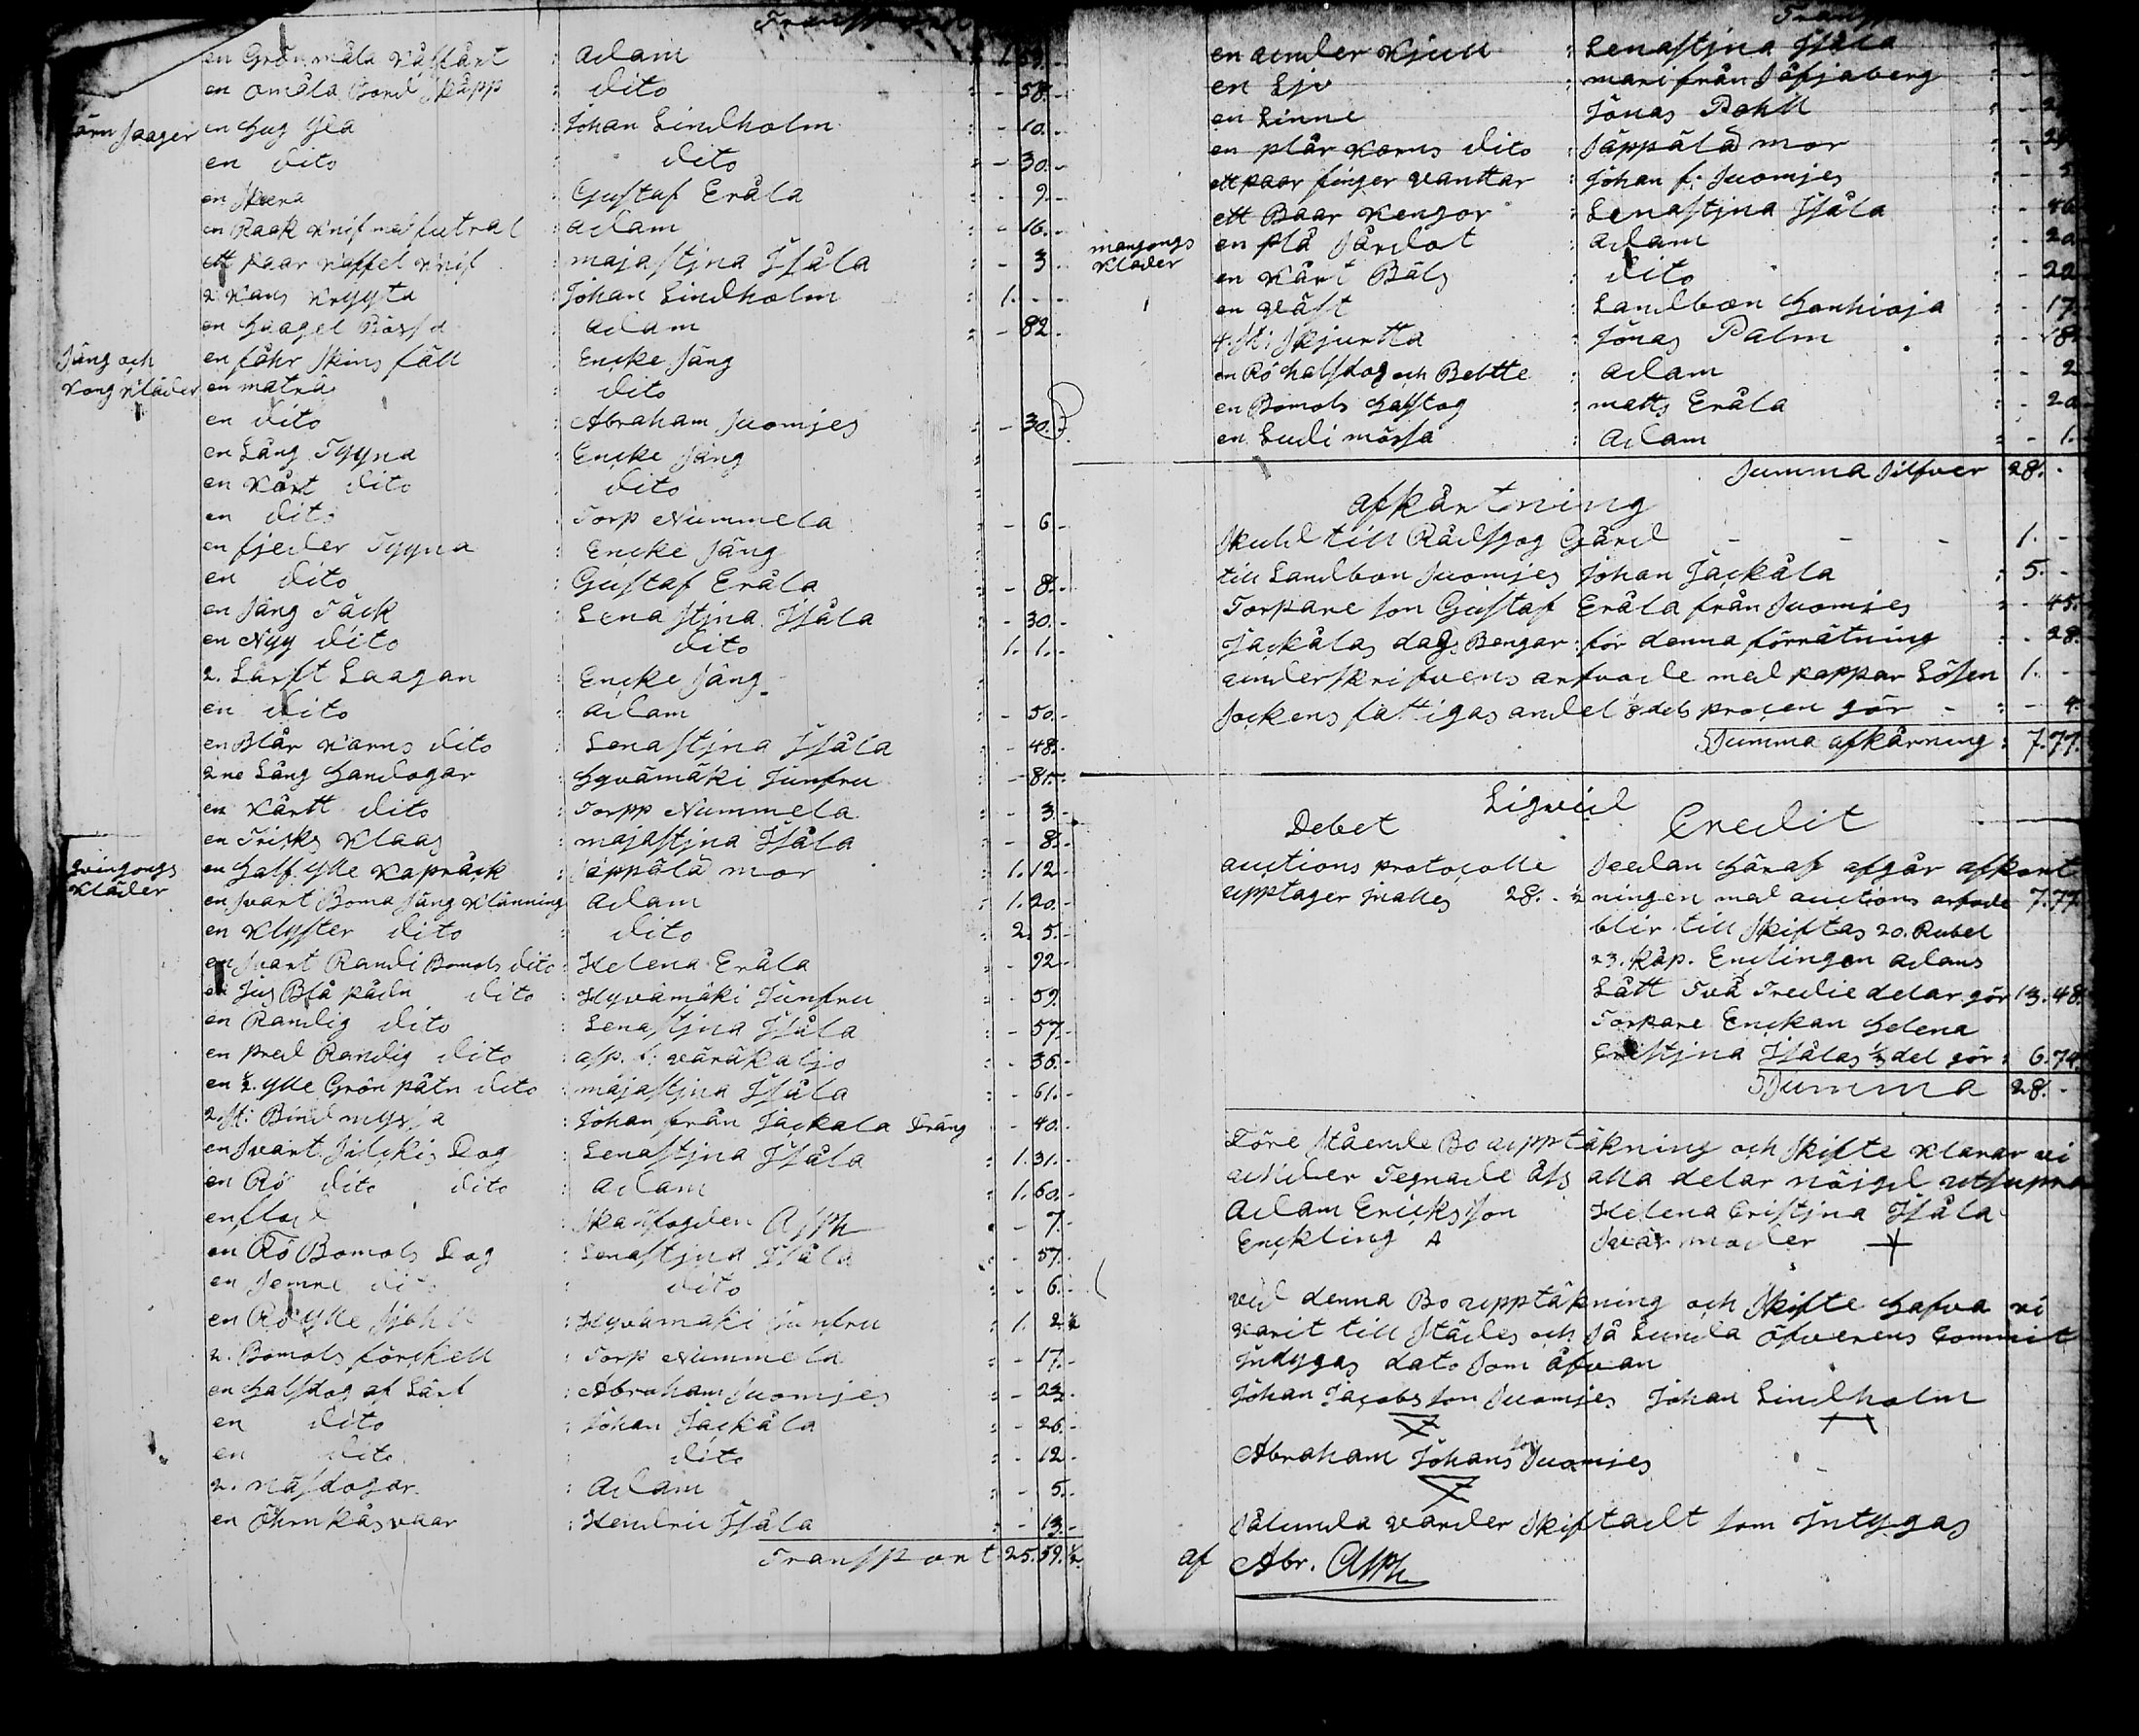 Transport
en Grön måla : Adam : 1.
en omåla Bord skåpp : dito : - 58. -
en hug Yxa : Johan Lindholm : - 10. -
en dito : dito : - 30. -
en skära : Gustaf Eråla : - 9. -
en Raak knif med futral : Adam : - 16. -
ett paar kaffel knif : majastjna Jsåla : - 3 -
2 kans krygta : Johan Lindholm : 1. - -
en haagel Bössa : Adam : - 82 -
Säng och en fåhr skins fäll : Encke säng
Kang kläder en matras : dito
en dito : Abraham Suomjes : - 30. -
en Lång Tyyna : Encke säng :
en kårt dito : dito :
en dito : Torp Nummela : - 6 -
en fjeder Tyyna : Encke säng :
en dito : Gustaf Eråla : - 8. -
en säng Täck : Lenastjna Jsåla : - 30. -
en Nyy dito : dito : 1. 1. -
2. Lärft Laagan : Encke säng :
en dito : Adam : - 50. -
en Blår karns dito : Lenastjna Jsåla : - 48. -
2ne Lång handogar : Hyvämäki Junfru : - 81. -
en kårtt dito : Torpp Nummela : - 3. -
en Trisks Klaas : majastjna Jsåla : - 8. -
qvingongs en half ylle kapråck : Säppälä mor : 1.12 -
kläder en svart Boma säng klänning : Adam : 1.20. -
en Klyster dito : dito : 2. 5. -
en svart Randi Bomols dito : Helena Eråla : - 92 -
en Jus Blå påtn dito : Hyvämäki Junfru : - 59.
en Randig dito : Lenastjna Jsåla : - 57. -
en pred Randig dito : asp. f: väräkaljo : - 36. -
en ½ ylle Grön påtn dito : majastjna Jsåla : - 61. -
2 st: Bind myssa : Johan från Jackala Dräng - 40. -
en svart silckis Dog : Lenastjna Jsåla : 1.31. -
en Rö dito dito : Adam : 1.60. -
en flod : Skaufogden Asph - 7. -
en Rö Bomols Dog : Lenastjna Jsåla : - 57. -
en semre dito : dito : - 6. -
en Rö ylle : Hyvämäki Junfru : 1. 2 ½
2. Bomols förskell : Torp Nummela : - 17. -
en halsdog af Lärf : Abraham Suomjes : - 23. -
en dito : Johan Jackåla : - 26. -
en dito : dito : - 12 -
2. näsdogar : Adam : - 5. -
en öhrnkås vaar : Hendric Jsåla : - 13. -
Transport 25.59.½
en under Kjull : Lenastjna Jsåla :
en Ljv : mari från Säfjaberg : -
en Linne : Jonas Pohll : -
en plår karns dito : Säppälä mor : -
ett paar finger vanttar : Johan f: Suomjes : -
ett Baar kengor : Lenastjna Jsåla : -
mangongs en plå Sårdot : Adam : - 20
kläder en kårt Bäls : dito : - 22
en väst : Landbon hanhioja : - 17.
4. st: skjurtta : Jonas Palm : - 18
en Rö halsdog och Beltte : Adam : - 2
en Bomols halstog : matts Eråla : - 20
en Ludi mössa : Adam : - 1. -
Summa Silfver 28. -
afkårtning
Skuld till Rådsgog Gård - - - 1. -
till Landbon Suomjes Johan Jackåla : 5. -
Torpare son Gustaf Eråla från Suomjes : - 45.
Jackålas dags Bengar för denna förrätning : - 28.
underskrifvens arfvode med pappar Lösen 1. -
Sockens fattigas andel ⅛dels procen gör - : - 4.
Summa afkårning : 7.77.
Liqvid
Debet Credit
auctions protocolle Seedan häraf afgår afkort
upptager jnalles 28. - ½ ningen med auctions arfode 7.77
blir till Skiftas 20. Rubel
23. kåp. Enclingen Adams
Lått Två Tredie delar gör 13.48.
Torpare Enckan helena
Cristjna Jsålas ⅓ del gör : 6.74.
Summa 28. -
Före Stående Bo upptäkning och Skifte klarar vi
under Tegnade åss alla delar nöigd utsupra
Adam Ericks son Helena Cristjna Jsåla
Enckling A svär moder +
ved denna Bo upptäkning och Skifte hafva vi
varit till städes och så Lunda öfverens commit
Jntygas dato som åfvan
Johan Jacobs son Suomjes Johan Lindholm
Abraham Johans son Suomjes
Sålunda varder Skiftadt som Jntygas
af Abr. Asph